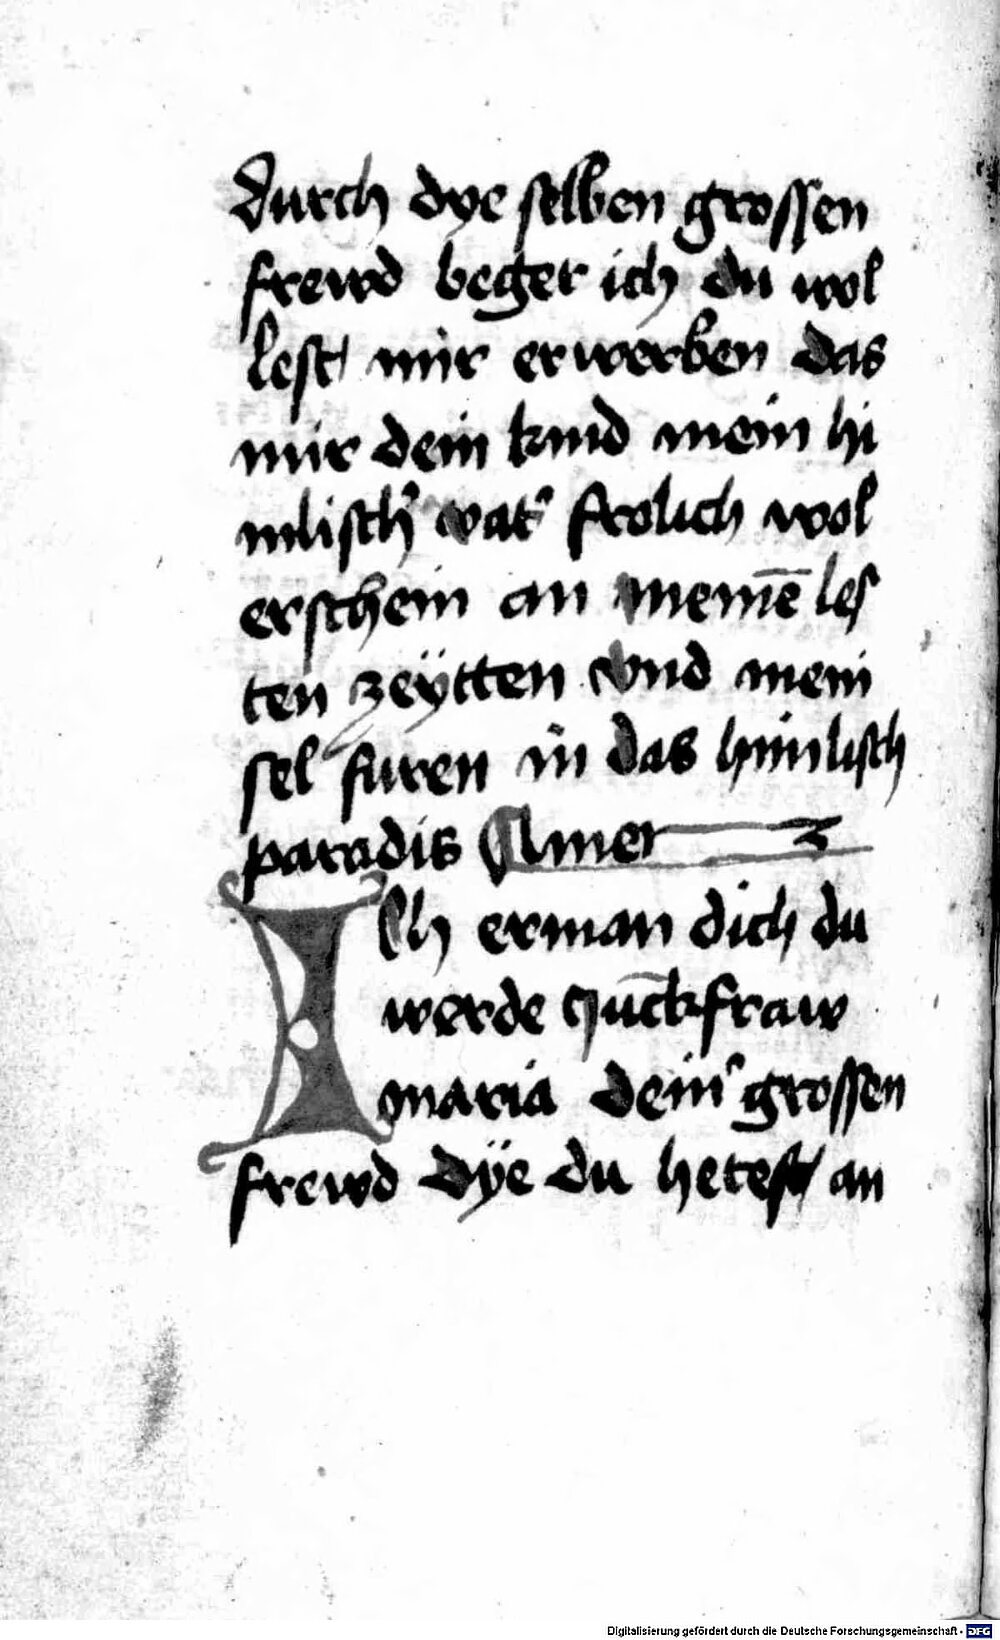 durch dye selben grossen
frewd beger ich du wol
lest mir erwerben das
mir dein kind mein hi
mlisch' vat' frolich wol
erschein an meinē les
ten zeÿtten vnd mein
sel furen in das himlisch
paradis Amen
Ich erman dich du
werde Juckfraw
maria dein' grossen
frewd dÿe du hetest an
Digitalisierung gefördert durch die Deutsche Forschungsgemeinschaft - DFG